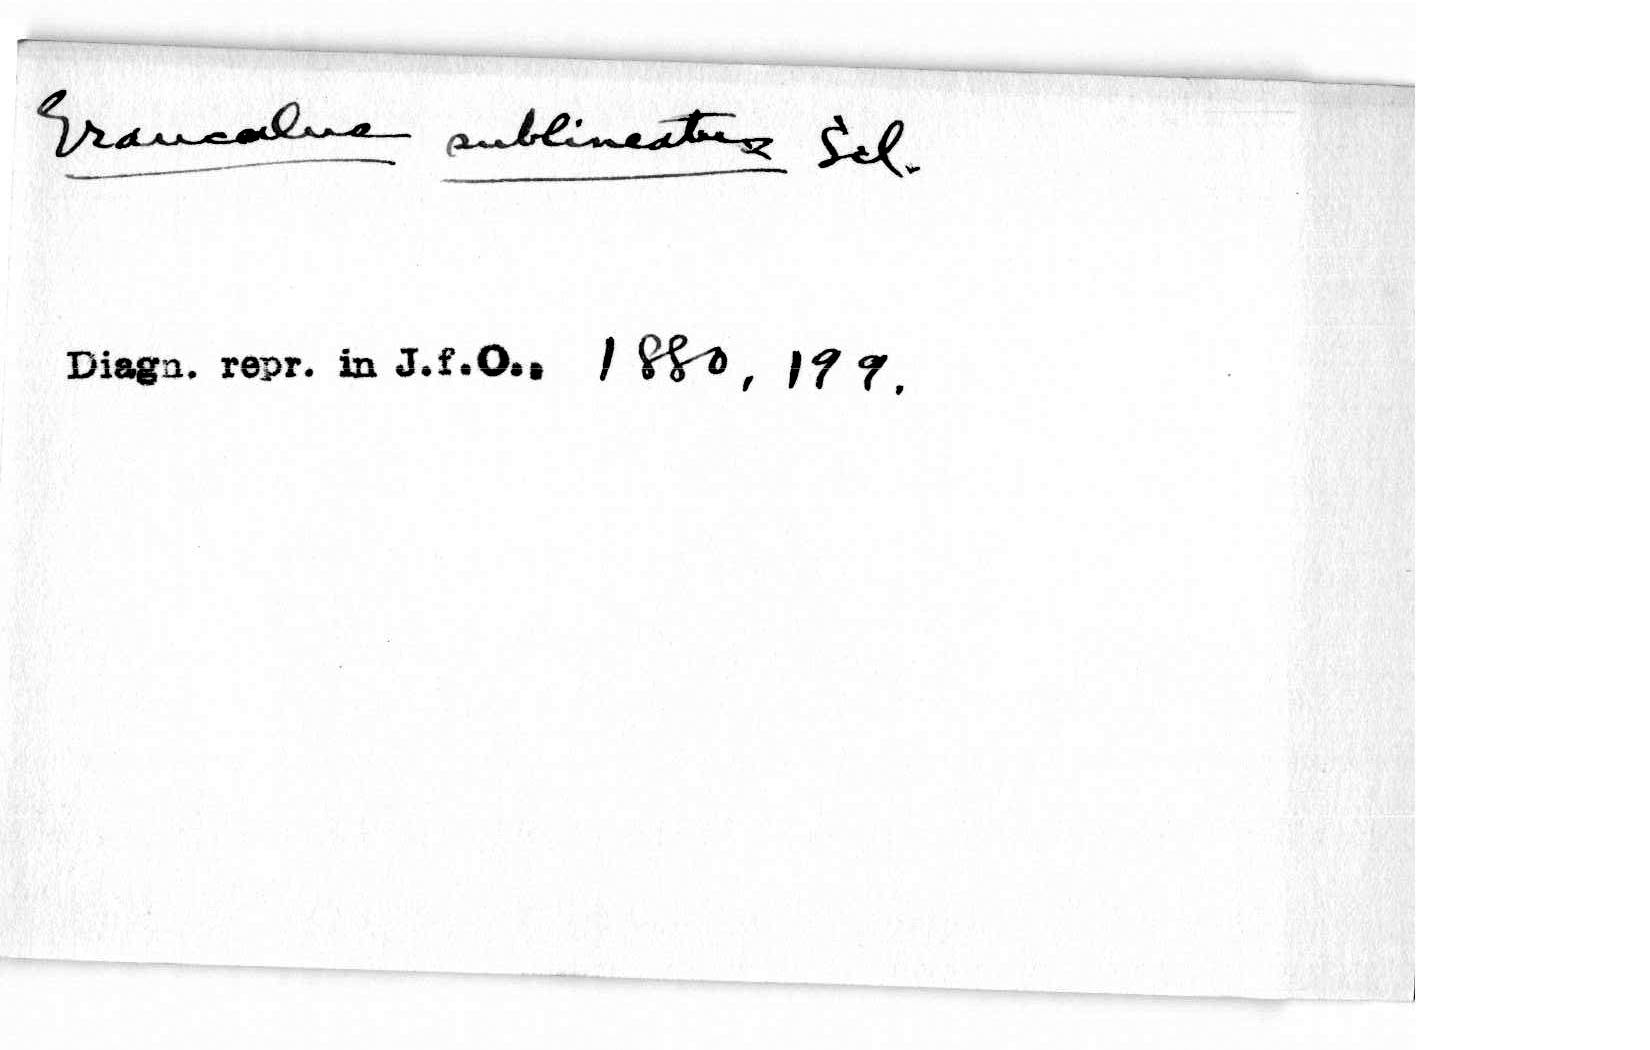 Graucalus sublineatus Scl.
Diagn. repr. in J.f.O., 1880, 199.